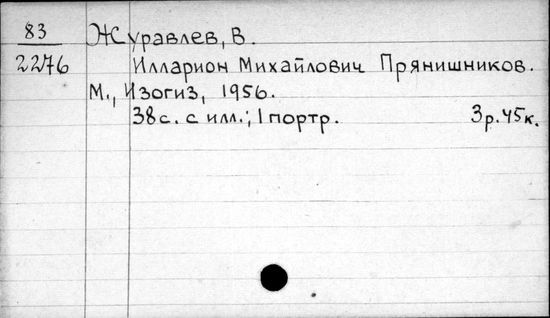 83 Журавлев, В.
2276 Илларион Михайлович Прянишников.
М., Изогиз, 1956.
38 с. с илл.; 1 портр. 3 р. 45 к.